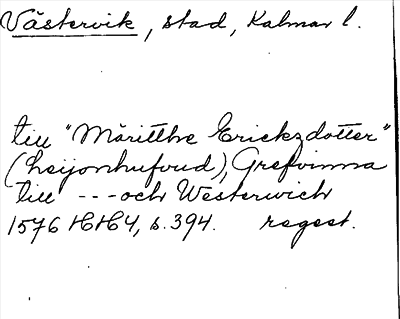 Västervik, stad, Kalmar l.
till "Märitthe Ericksdotter"
(Leijonhufvud), Grefvinna
till --- och Westerwich
1576 HH4, s. 394. regest.